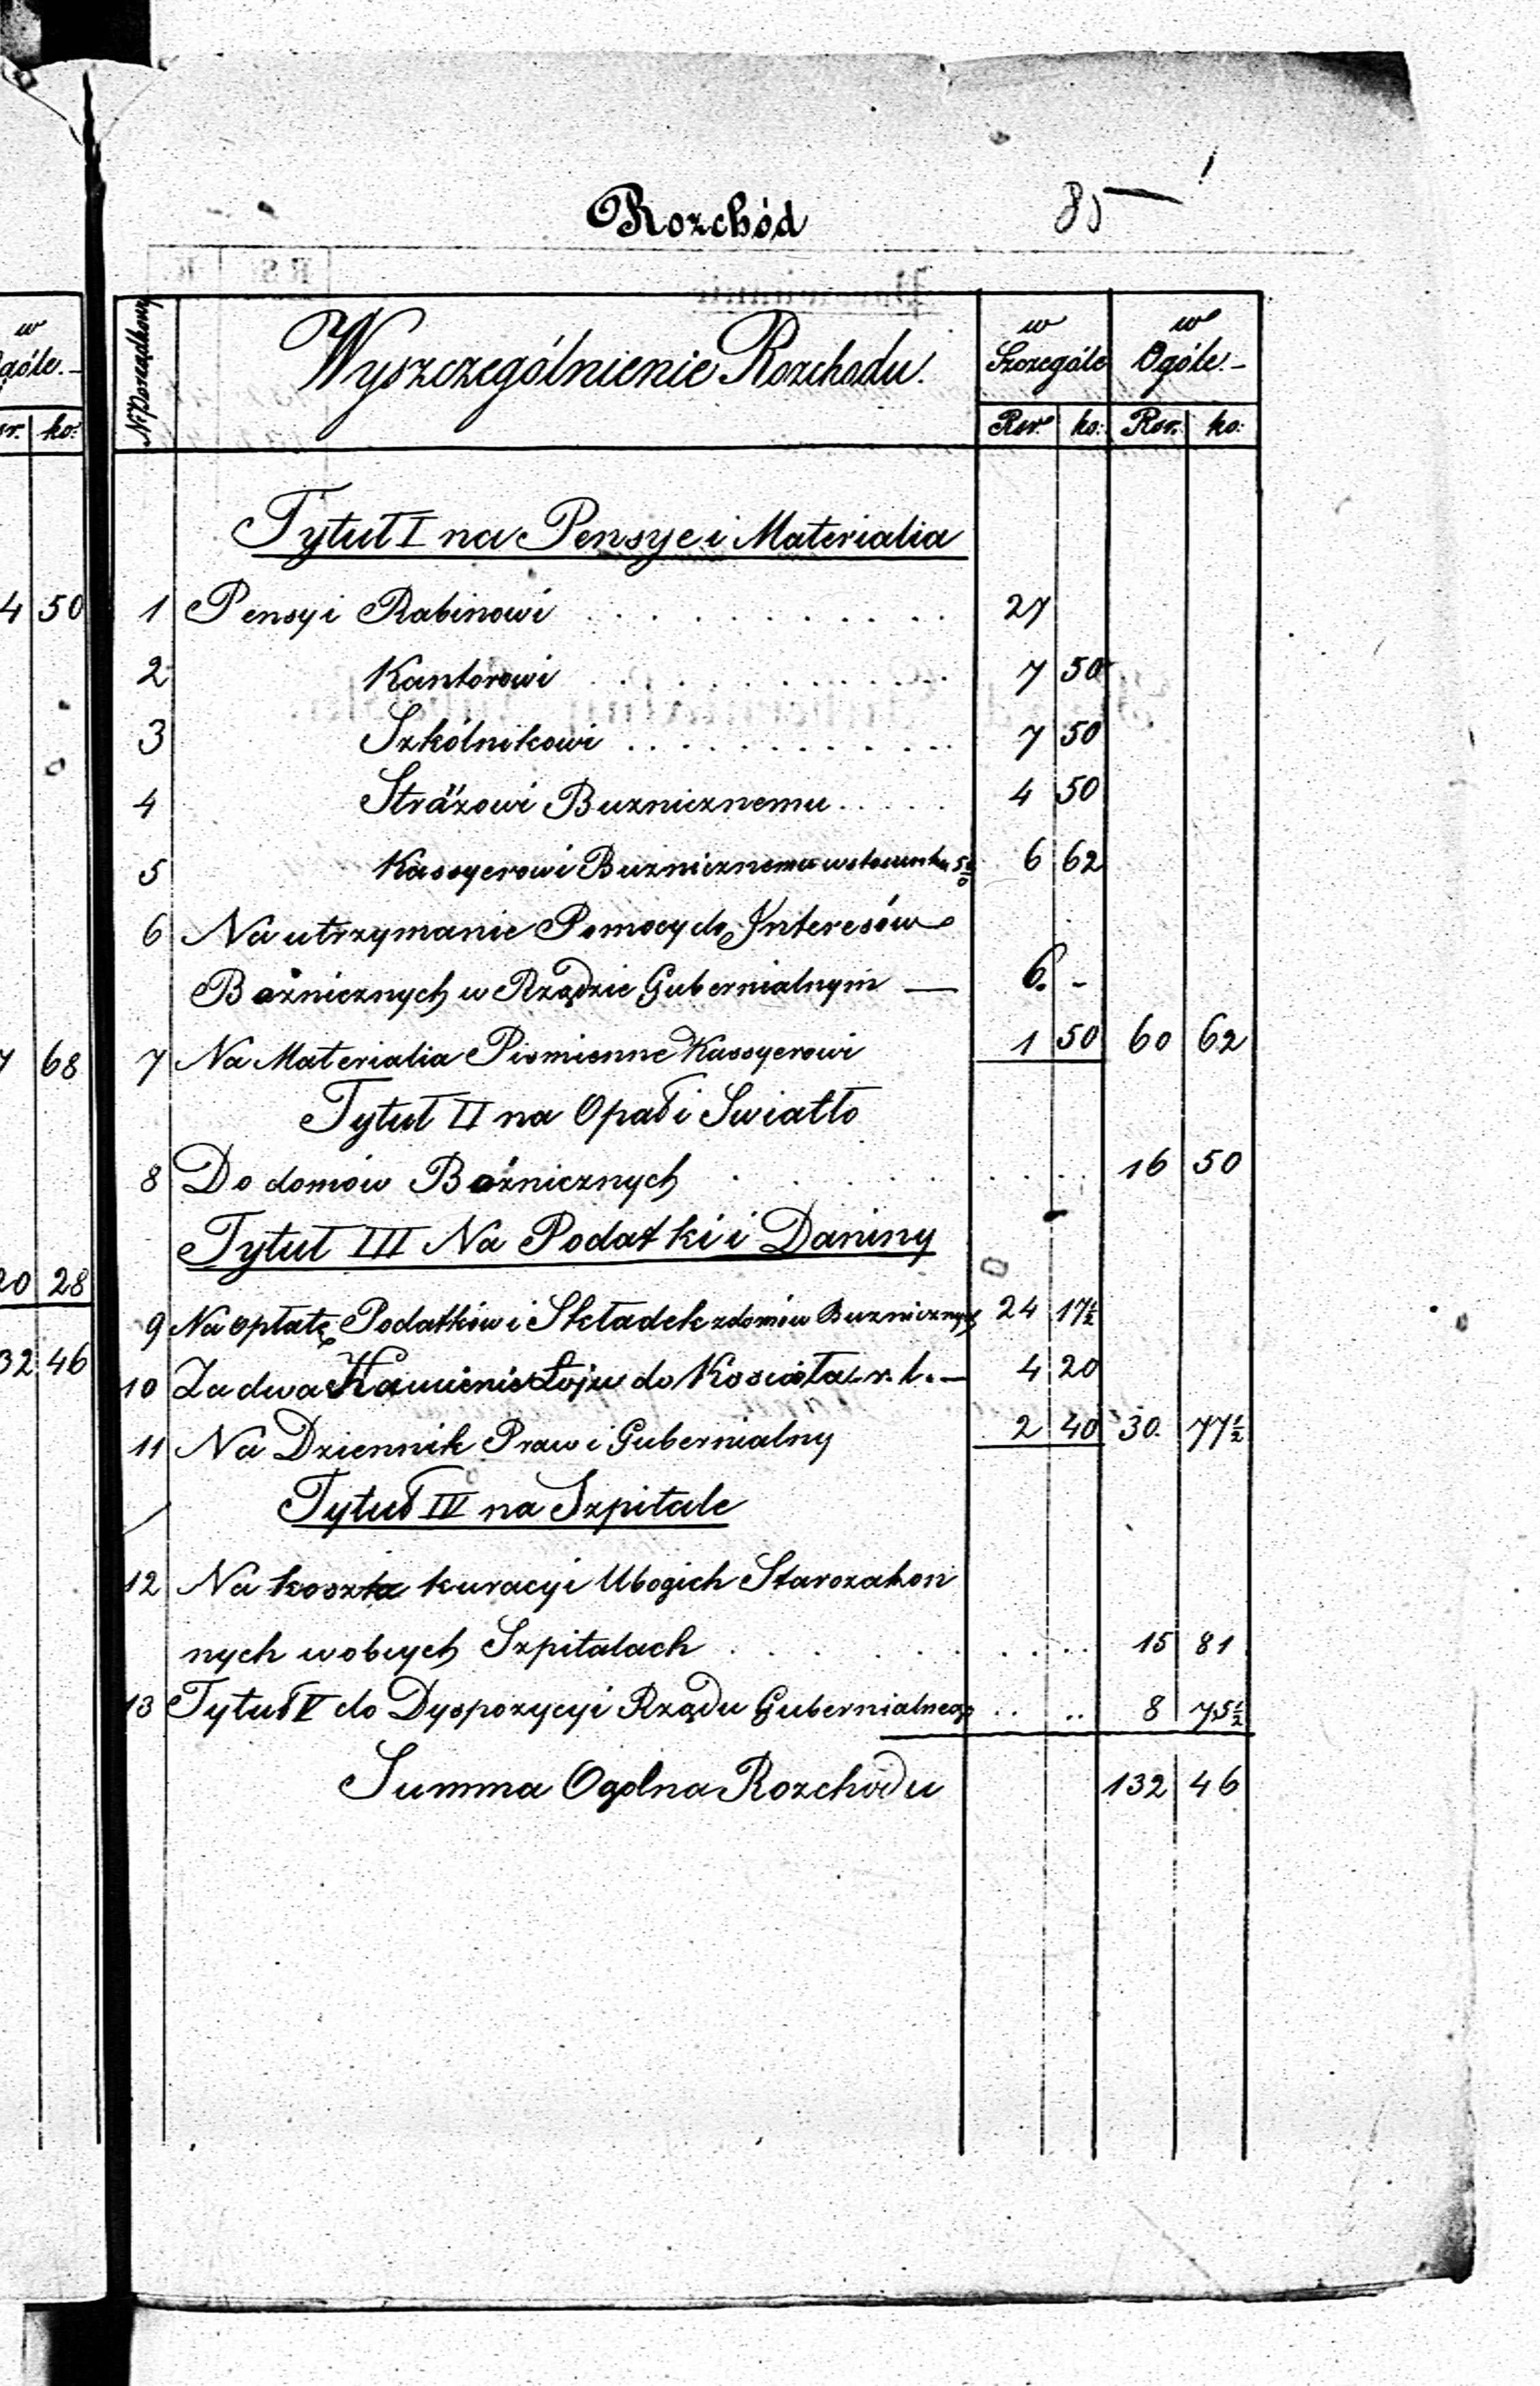 85
Rozchód
w
Ogóle.-
sr. ko:
4 50
7 68
20 28
32 46
Nr Porządkowy
Wyszczególnienie Rozchodu.
w Szczególe
w Ogóle.-
Rsr. ko: Rsr. ko:
Tytuł I na Pensye i Materialia
1 Pensyi Rabinowi . . . . . . . . . . . 27
2 Kantorowi . . . . . . . . . . . 7 50
3 Szkólnikowi . . . . . . . . . . . 7 50
4 Stróżowi Buznicznemu . . . . . 4 50
5 Kassyerowi Buznicznemu w stosunku 5% 6 62
6 Na utrzymanie Pomocy do Interesów
Bożnicznych w Rządzie Gubernialnym — 6. -
7 Na Materialia Pismienne Kassyerowi 1 50 60 62
Tytuł II na Opał i Swiatło
8 Do domów Bożnicznych . . . . . . . . . 16 50
Tytuł III Na Podatki i Daniny
9 Na opłatę Podatków i Składek z domów Buznicznych 24 17½
10 Za dwa Kamienie Łoju do Koscioła r. l. — 4 20
11 Na Dziennik Praw i Gubernialny 2 40 30. 77½
Tytuł IV na Szpitale
12 Na koszta kuracyi Ubogich Starozakon
nych w obcych Szpitalach . . . . . . . . . 15 81
13 Tytuł V do Dyspozycyi Rządu Gubernialnego .. .. 8 75½
Summa Ogolna Rozchodu 132 46